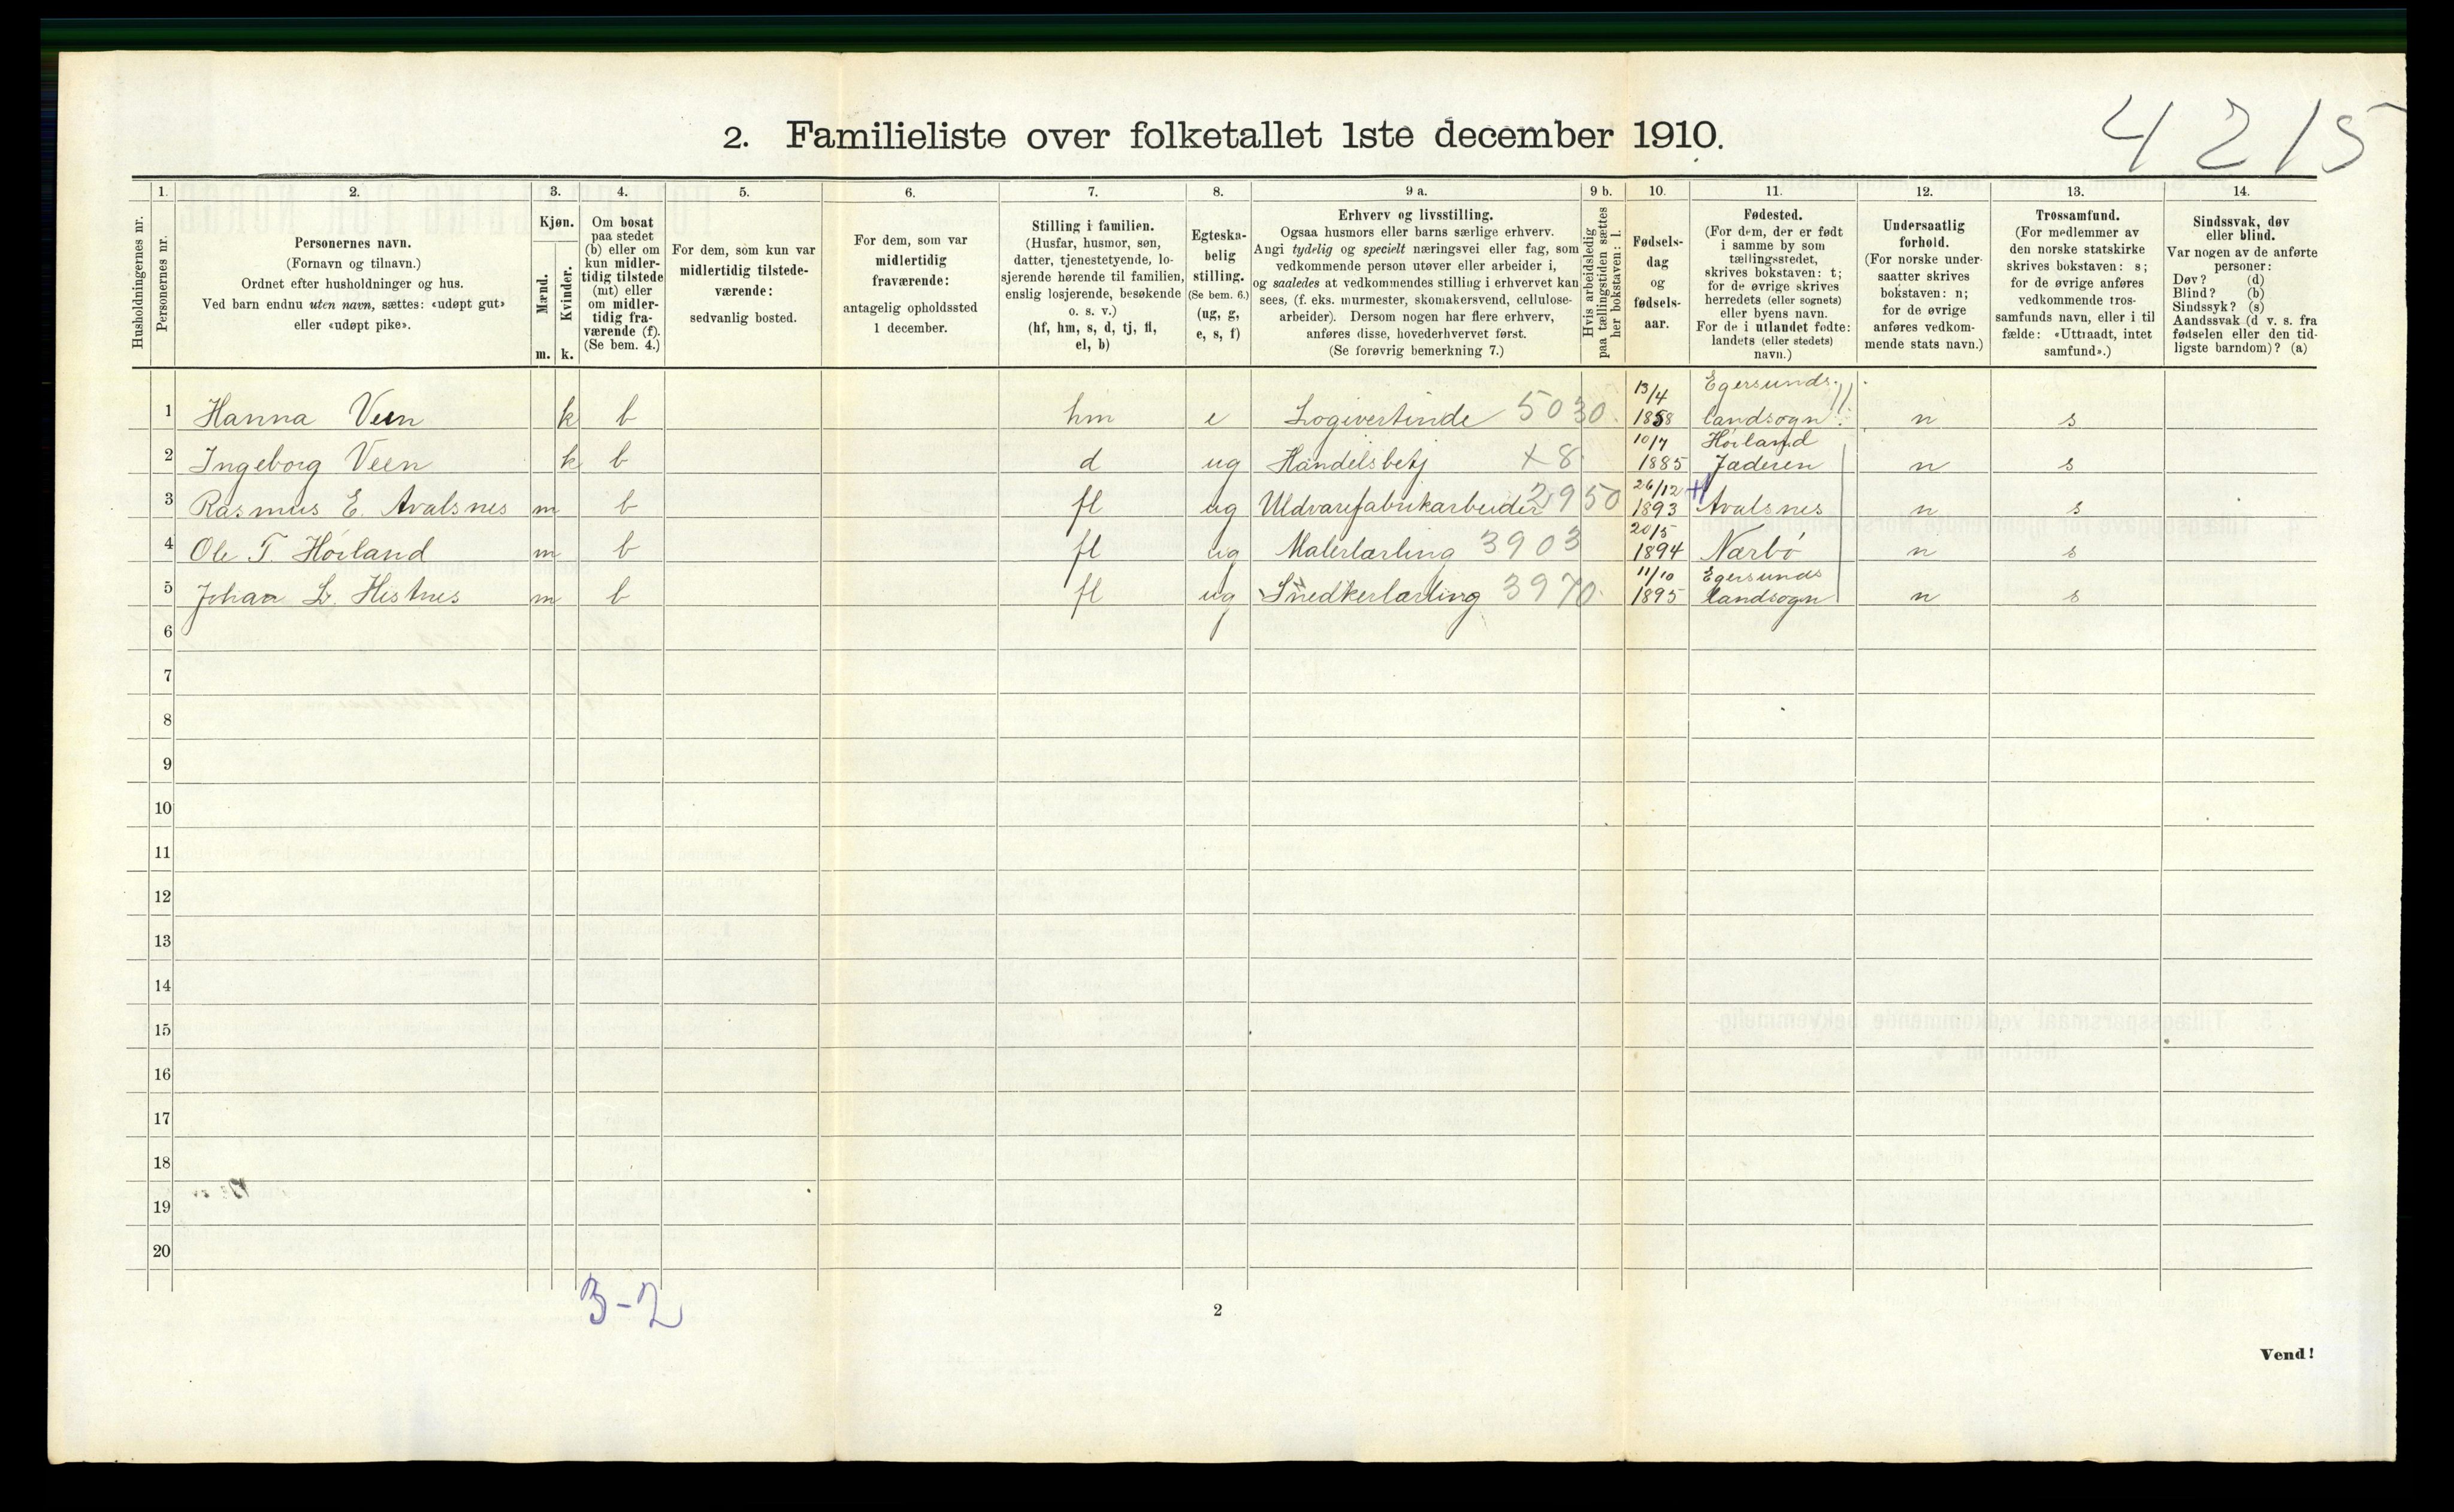 4215
2. Familieliste over folketallet 1ste december 1910.
1. 2. 3. 4. 5. 6. 7. 8. 9 a. 9 b. 10. 11. 12. 13. 14.
Husholdningernes nr.
Personernes nr.
Personernes navn.
(Fornavn og tilnavn.)
Ordnet efter husholdninger og hus.
Ved barn endnu uten navn, sættes: «udøpt gut»
eller «udøpt pike».
Kjøn.
Mænd.
Kvinder.
m. k.
Om bosat
paa stedet
(b) eller om
kun midler-
tidig tilstede
(mt) eller
om midler-
tidig fra-
værende (f).
(Se bem. 4.)
For dem, som kun var
midlertidig tilstede-
værende:
sedvanlig bosted.
For dem, som var
midlertidig
fraværende:
antagelig opholdssted
1 december.
Stilling i familien.
(Husfar, husmor, søn,
datter, tjenestetyende, lo-
sjerende hørende til familien,
enslig losjerende, besøkende
o. s. v.)
(hf, hm, s, d, tj, fl,
el, b)
Egteska-
belig
stilling.
(Se bem. 6.)
(ug, g,
e, s, f)
Erhverv og livsstilling.
Ogsaa husmors eller barns særlige erhverv.
Angi tydelig og specielt næringsvei eller fag, som
vedkommende person utøver eller arbeider i,
og saaledes at vedkommendes stilling i erhvervet kan
sees, (f. eks. murmester, skomakersvend, cellulose-
arbeider). Dersom nogen har flere erhverv,
anføres disse, hovederhvervet først.
(Se forøvrig bemerkning 7.)
Hvis arbeidsledig
paa tællingstiden sættes
her bokstaven: l.
Fødsels-
dag
og
fødsels-
aar.
Fødested.
(For dem, der er født
i samme by som
tællingsstedet,
skrives bokstaven: t;
for de øvrige skrives
herredets (eller sognets)
eller byens navn.
For de i utlandet fødte:
landets (eller stedets)
navn.)
Undersaatlig
forhold.
(For norske under-
saatter skrives
bokstaven: n;
for de øvrige
anføres vedkom-
mende stats navn.)
Trossamfund.
(For medlemmer av
den norske statskirke
skrives bokstaven: s;
for de øvrige anføres
vedkommende tros-
samfunds navn, eller i til
fælde: «Uttraadt, intet
samfund».)
Sindssvak, døv
eller blind.
Var nogen av de anførte
personer:
Døv? (d)
Blind? (b)
Sindssyk? (s)
Aandssvak (d v. s. fra
fødselen eller den tid-
ligste barndom)? (a)
1 Hanna Veen k b hm e Logivertinde 5030 13/4 1858 Egersunds landsogn n s
2 Ingeborg Veen k b d ug Handelsbetj x 8 10/7 1885 Høiland Jæderen n s
3 Rasmus E. Avalsnes m b fl ug Uldvarefabrikarbeider 2950 26/12 1893 Avalsnes n s
4 Ole T. Höiland m b fl ug Malerlærling 3903 20/5 1894 Nærbö n s
5 Johan L. Hestnes m b fl ug Snedkerlærling 3970 11/10 1895 Egersunds landsogn n s
6
7
8
9
10
11
12
13
14
15
16
17
18
19
20
3-2
2
Vend!